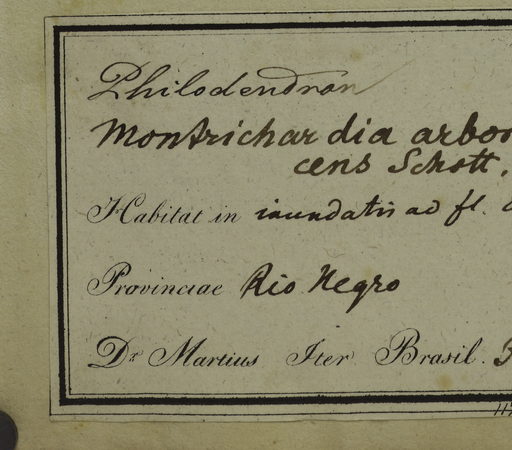 Philodendron
Montrichardia arbor
cens Schott.
Habitat in inundatis ad fl.
Provinciae Rio Negro
Dr Martius Iter Brasil.